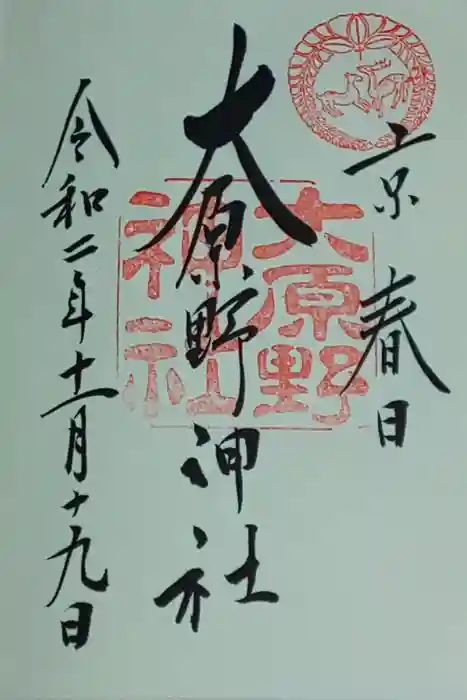 京春日
大原野神社
令和二年十一月十九日
大原野
神社